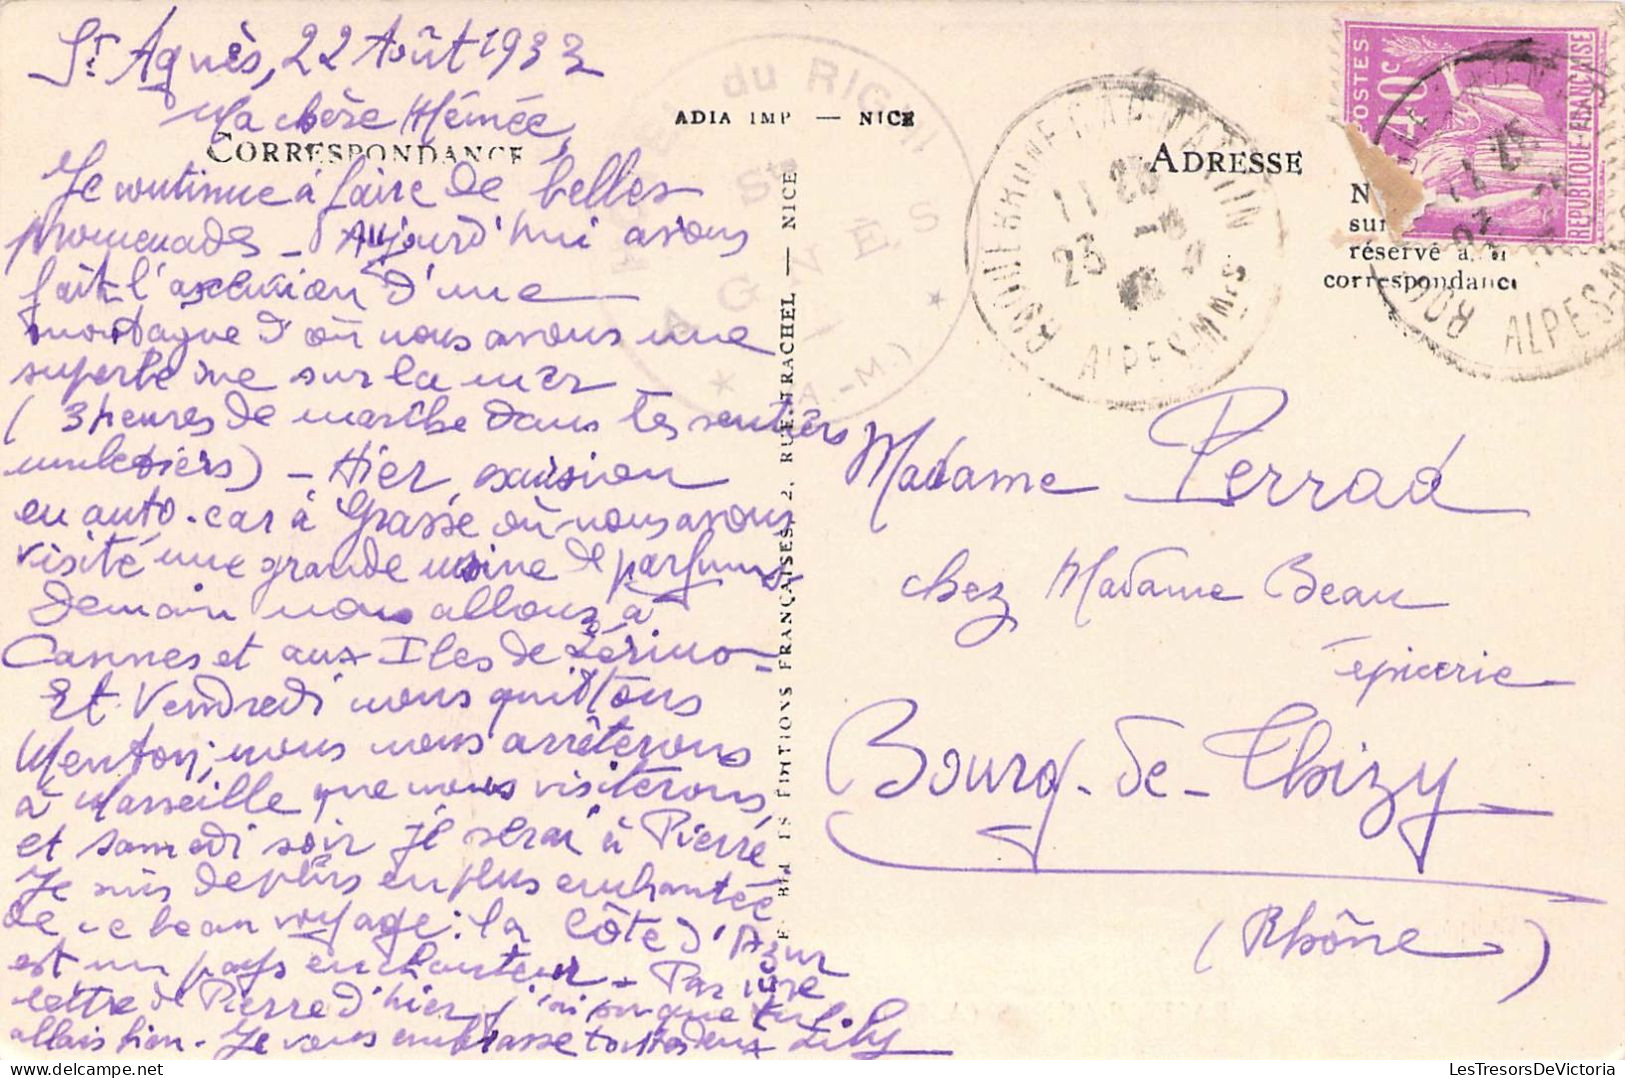 St Agnès, 22 Août 1933
Ma chère Mémée,
CORRESPONDANCE
Je continue à faire de belles
promenades - Aujourd'hui avons
fait l'ascension d'une
montagne d'où nous avons une
superbe vue sur la mer -
(3 heures de marche dans les sentiers
muletiers) - Hier, excursion
en auto-car à Grasse où nous avons
visité une grande usine de parfums
Demain nous allons à
Cannes et aux Iles de Lérins -
Et Vendredi nous quittons
Menton; nous nous arrêterons
à Marseille, que nous visiterons,
et samedi soir je serai à Pierre
Je suis de plus en plus enchantée
de ce beau voyage: la Côte d'Azur
est un pays enchanteur - Par une
lettre de Pierre d'hier, j'ai su que tu
allais bien. Je vous embrasse toutes deux Lily
ADIA IMP — NICE
2, RUE RACHEL — NICE
EDITIONS FRANÇAISES
du RIGHI
Ste
AGNÈS
(A.-M.)
ROQUEBRUNE-CAP-MARTIN
11 25
23
ALPES-MMES
ADRESSE
N
sur
réservé à
correspondance
POSTES
40c
REPUBLIQUE-FRANÇAISE
ROQ
ALPES-M
Madame Perrad
chez Madame Beau
épicerie
Bourg-de-Thizy
(Rhône)
LesTresorsDeVictoria